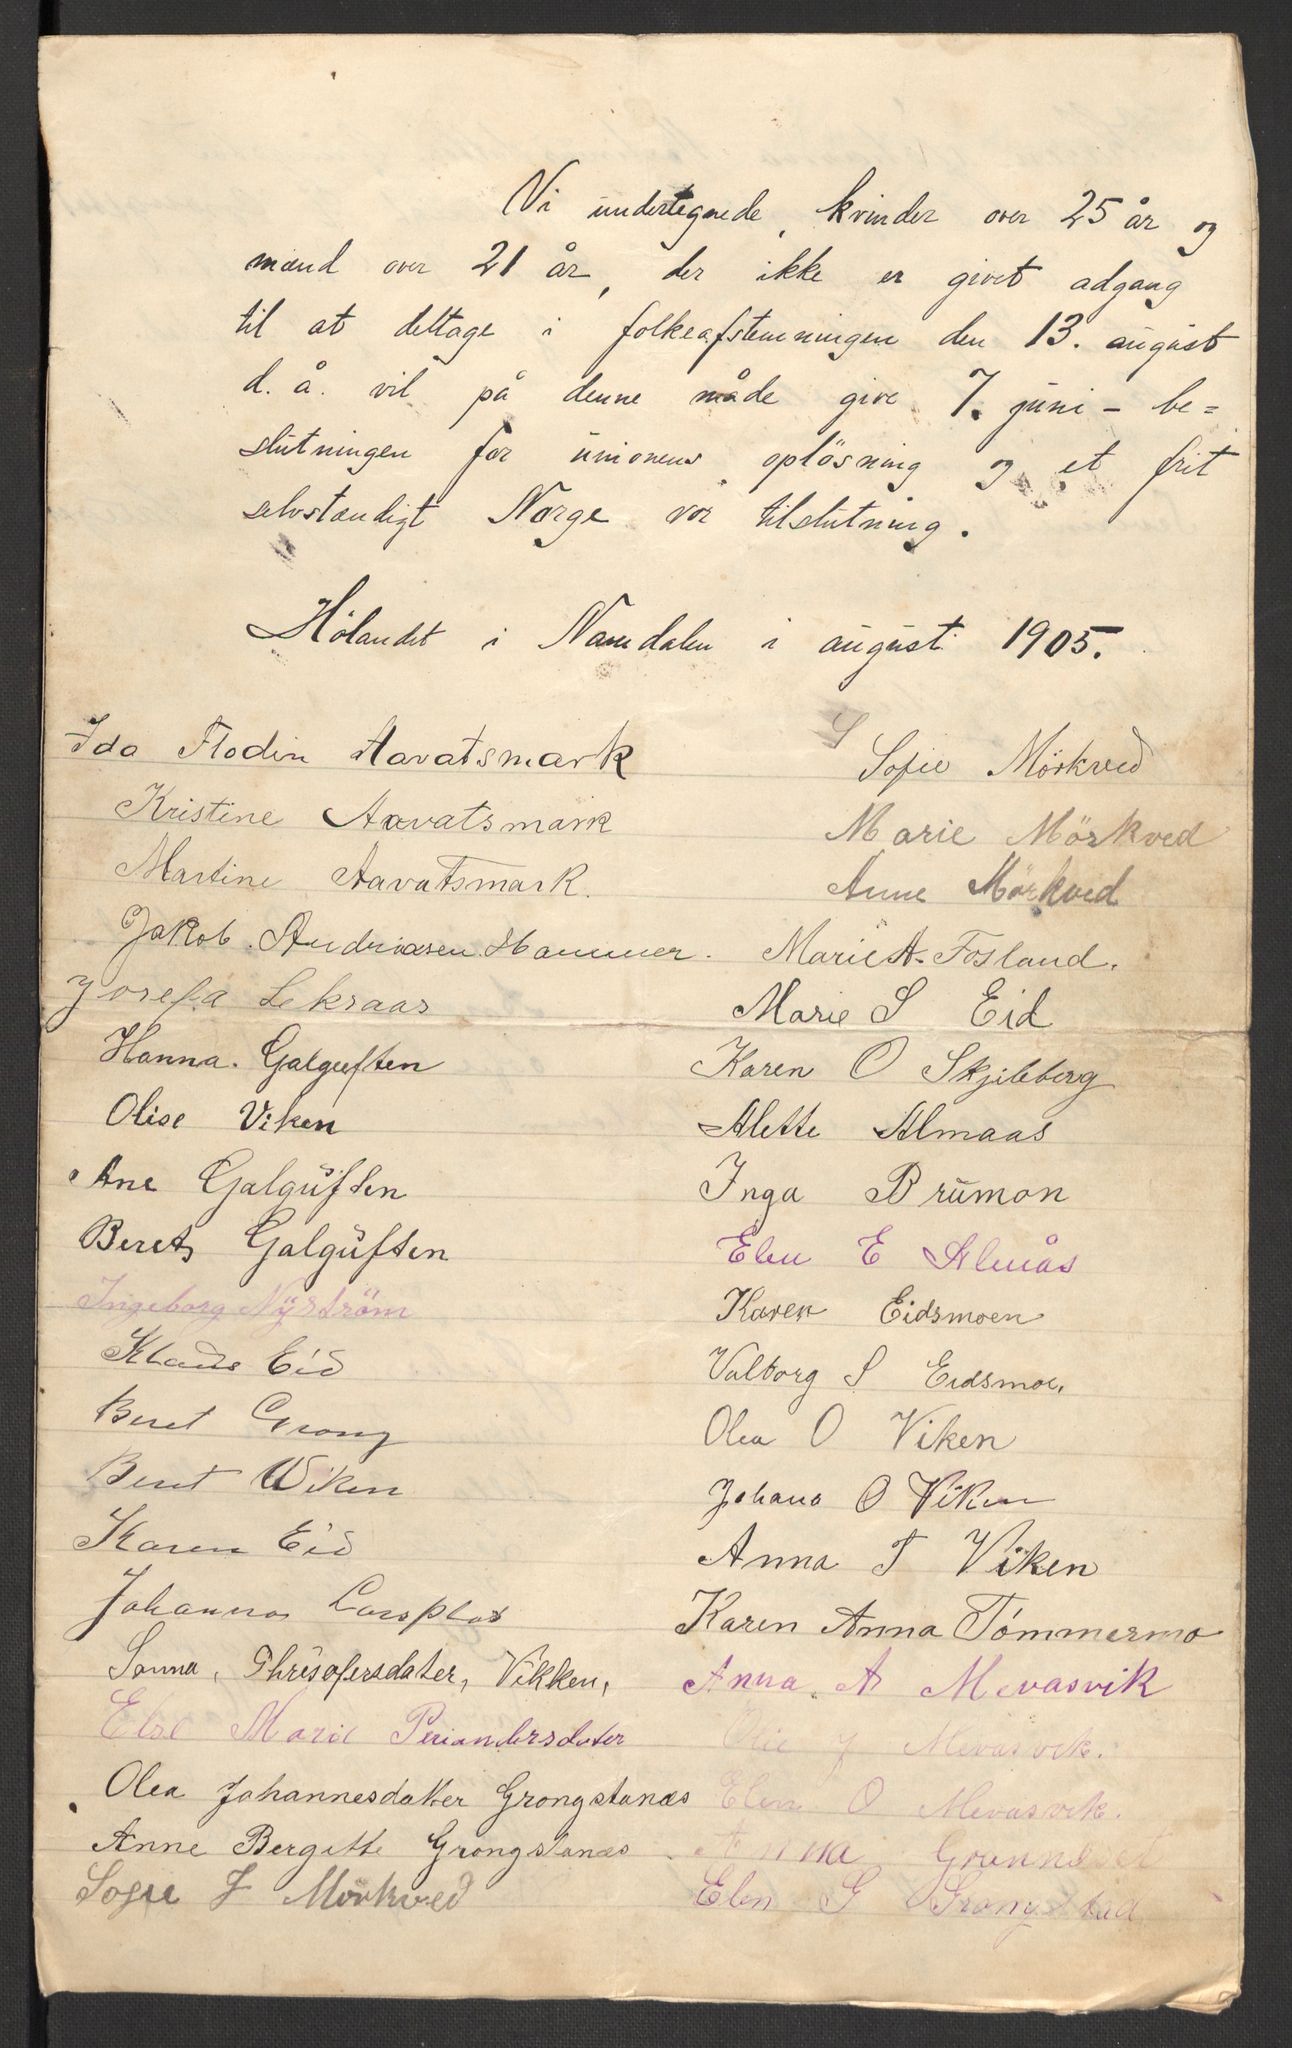 Vi undertegnede, kvinder over 25 år og
mænd over 21 år, der ikke er givet adgang
til at deltage i folkeafstemningen den 13. august
d. å. vil på denne måde give 7. juni - be=
slutningen for unionens oplösning og et frit
selvstændigt Norge vor tilslutning.
Hölandet i Namdalen i august 1905.
Ida Flodin Aavatsmark
Kristine Aavatsmark
Martine Aavatsmark.
Jakob. Andreasen Hammer.
Josefa Lekraas
Hanna. Galguften
Olise Viken
Ane Galguften
Beret Galguften
Ingeborg Nyström
Klaus Eid
Beret Grong
Beret Wiken
Karen Eid
Johanna
Sanna, Vikken,
Else Marie Periandersdater
Olea Johannesdatter Grongstanæs
Anne Bergitte Grongstanæs
Sofie J Mörkved
S
Sofie Mörkved
Marie Mörkved
Anne Mörkved
Marie A. Fosland.
Marie S Eid
Karen O Skjileberg
Alette Almaas
Inga Brumon
Elen E Almås
Karen Eidsmoen
Valborg S Eidsmoe,
Olea O Viken
Johana O Viken
Anna T Viken
Karen Anna Tómmermo
Anna A Mevasvik
Olie J Mevasvik.
Elen O Mevasvik.
Anna
Elen G Grongstad